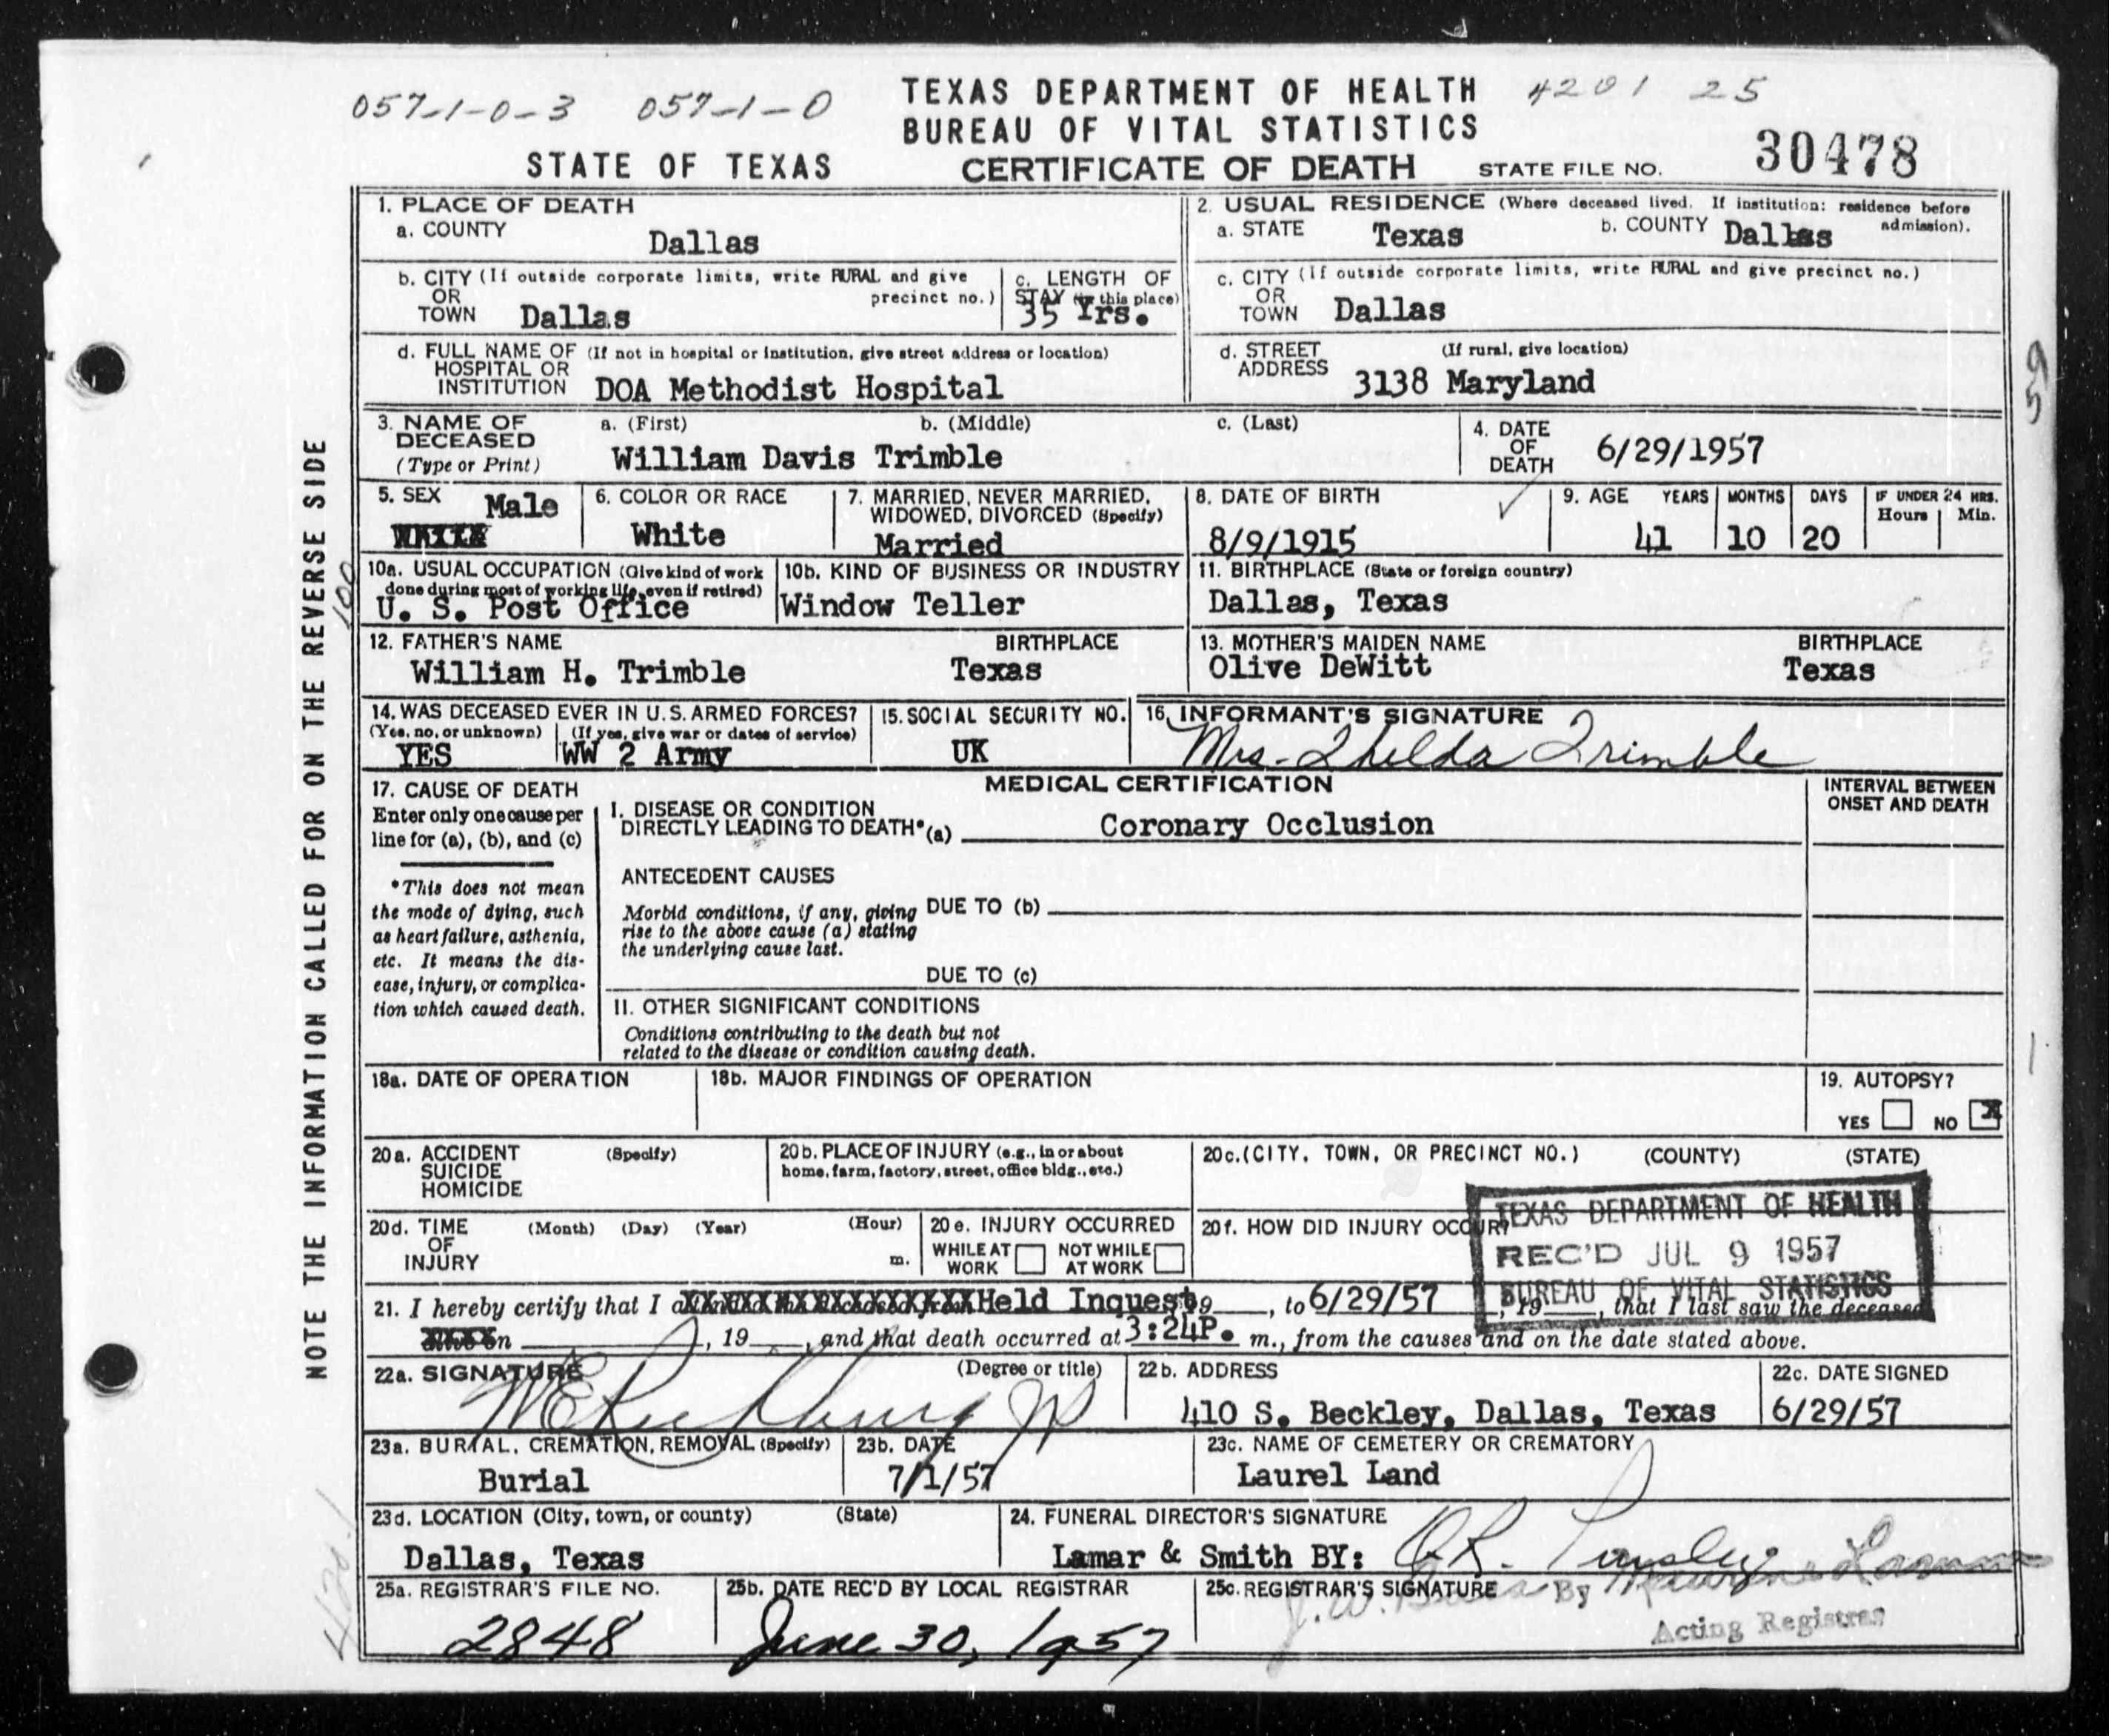 057-1-0-3 057-1-0
TEXAS DEPARTMENT OF HEALTH 4201 25
BUREAU OF VITAL STATISTICS
STATE OF TEXAS CERTIFICATE OF DEATH STATE FILE NO. 30478
NOTE THE INFORMATION CALLED FOR ON THE REVERSE SIDE
1. PLACE OF DEATH
a. COUNTY
Dallas
2. USUAL RESIDENCE (Where deceased lived. If institution: residence before admission).
a. STATE Texas b. COUNTY Dallas
b. CITY (If outside corporate limits, write RURAL and give precinct no.)
OR
TOWN Dallas
c. LENGTH OF
STAY (in this place)
35 Yrs.
c. CITY (If outside corporate limits, write RURAL and give precinct no.)
OR
TOWN Dallas
d. FULL NAME OF (If not in hospital or institution, give street address or location)
HOSPITAL OR
INSTITUTION DOA Methodist Hospital
d. STREET (If rural, give location)
ADDRESS 3138 Maryland
59
3. NAME OF a. (First) b. (Middle) c. (Last)
DECEASED
(Type or Print) William Davis Trimble
4. DATE
OF
DEATH 6/29/1957
5. SEX Male
6. COLOR OR RACE
White
7. MARRIED, NEVER MARRIED,
WIDOWED, DIVORCED (Specify)
Married
8. DATE OF BIRTH
8/9/1915
9. AGE YEARS MONTHS DAYS IF UNDER 24 HRS.
Hours Min.
41 10 20
100
10a. USUAL OCCUPATION (Give kind of work
done during most of working life, even if retired)
U. S. Post Office
10b. KIND OF BUSINESS OR INDUSTRY
Window Teller
11. BIRTHPLACE (State or foreign country)
Dallas, Texas
12. FATHER'S NAME BIRTHPLACE
William H. Trimble Texas
13. MOTHER'S MAIDEN NAME BIRTHPLACE
Olive DeWitt Texas
14. WAS DECEASED EVER IN U.S. ARMED FORCES?
(Yes, no, or unknown) (If yes, give war or dates of service)
YES WW 2 Army
15. SOCIAL SECURITY NO.
UK
16. INFORMANT'S SIGNATURE
Mrs. Thelda Trimble
17. CAUSE OF DEATH
Enter only one cause per
line for (a), (b), and (c)
*This does not mean
the mode of dying, such
as heart failure, asthenia,
etc. It means the dis-
ease, injury, or complica-
tion which caused death.
MEDICAL CERTIFICATION
INTERVAL BETWEEN
ONSET AND DEATH
I. DISEASE OR CONDITION
DIRECTLY LEADING TO DEATH*(a) Coronary Occlusion
ANTECEDENT CAUSES
Morbid conditions, if any, giving
rise to the above cause (a) stating
the underlying cause last.
DUE TO (b)
DUE TO (c)
II. OTHER SIGNIFICANT CONDITIONS
Conditions contributing to the death but not
related to the disease or condition causing death.
18a. DATE OF OPERATION
18b. MAJOR FINDINGS OF OPERATION
19. AUTOPSY?
YES NO X
20a. ACCIDENT (Specify)
SUICIDE
HOMICIDE
20b. PLACE OF INJURY (e.g., in or about
home, farm, factory, street, office bldg., etc.)
20c. (CITY, TOWN, OR PRECINCT NO.) (COUNTY) (STATE)
20d. TIME (Month) (Day) (Year) (Hour)
OF
INJURY m.
20e. INJURY OCCURRED
WHILE AT WORK NOT WHILE AT WORK
20f. HOW DID INJURY OCCUR?
TEXAS DEPARTMENT OF HEALTH
REC'D JUL 9 1957
BUREAU OF VITAL STATISTICS
21. I hereby certify that I attended the deceased from Held Inquest 19 , to 6/29/57 , 19 , that I last saw the deceased
alive on , 19 , and that death occurred at 3:24P. m., from the causes and on the date stated above.
22a. SIGNATURE (Degree or title)
JP
22b. ADDRESS
410 S. Beckley, Dallas, Texas
22c. DATE SIGNED
6/29/57
23a. BURIAL, CREMATION, REMOVAL (Specify)
Burial
23b. DATE
7/1/57
23c. NAME OF CEMETERY OR CREMATORY
Laurel Land
23d. LOCATION (City, town, or county) (State)
Dallas, Texas
24. FUNERAL DIRECTOR'S SIGNATURE
Lamar & Smith BY:
25a. REGISTRAR'S FILE NO.
2848
25b. DATE REC'D BY LOCAL REGISTRAR
June 30, 1957
25c. REGISTRAR'S SIGNATURE
J. W. By
Acting Registrar
420.1